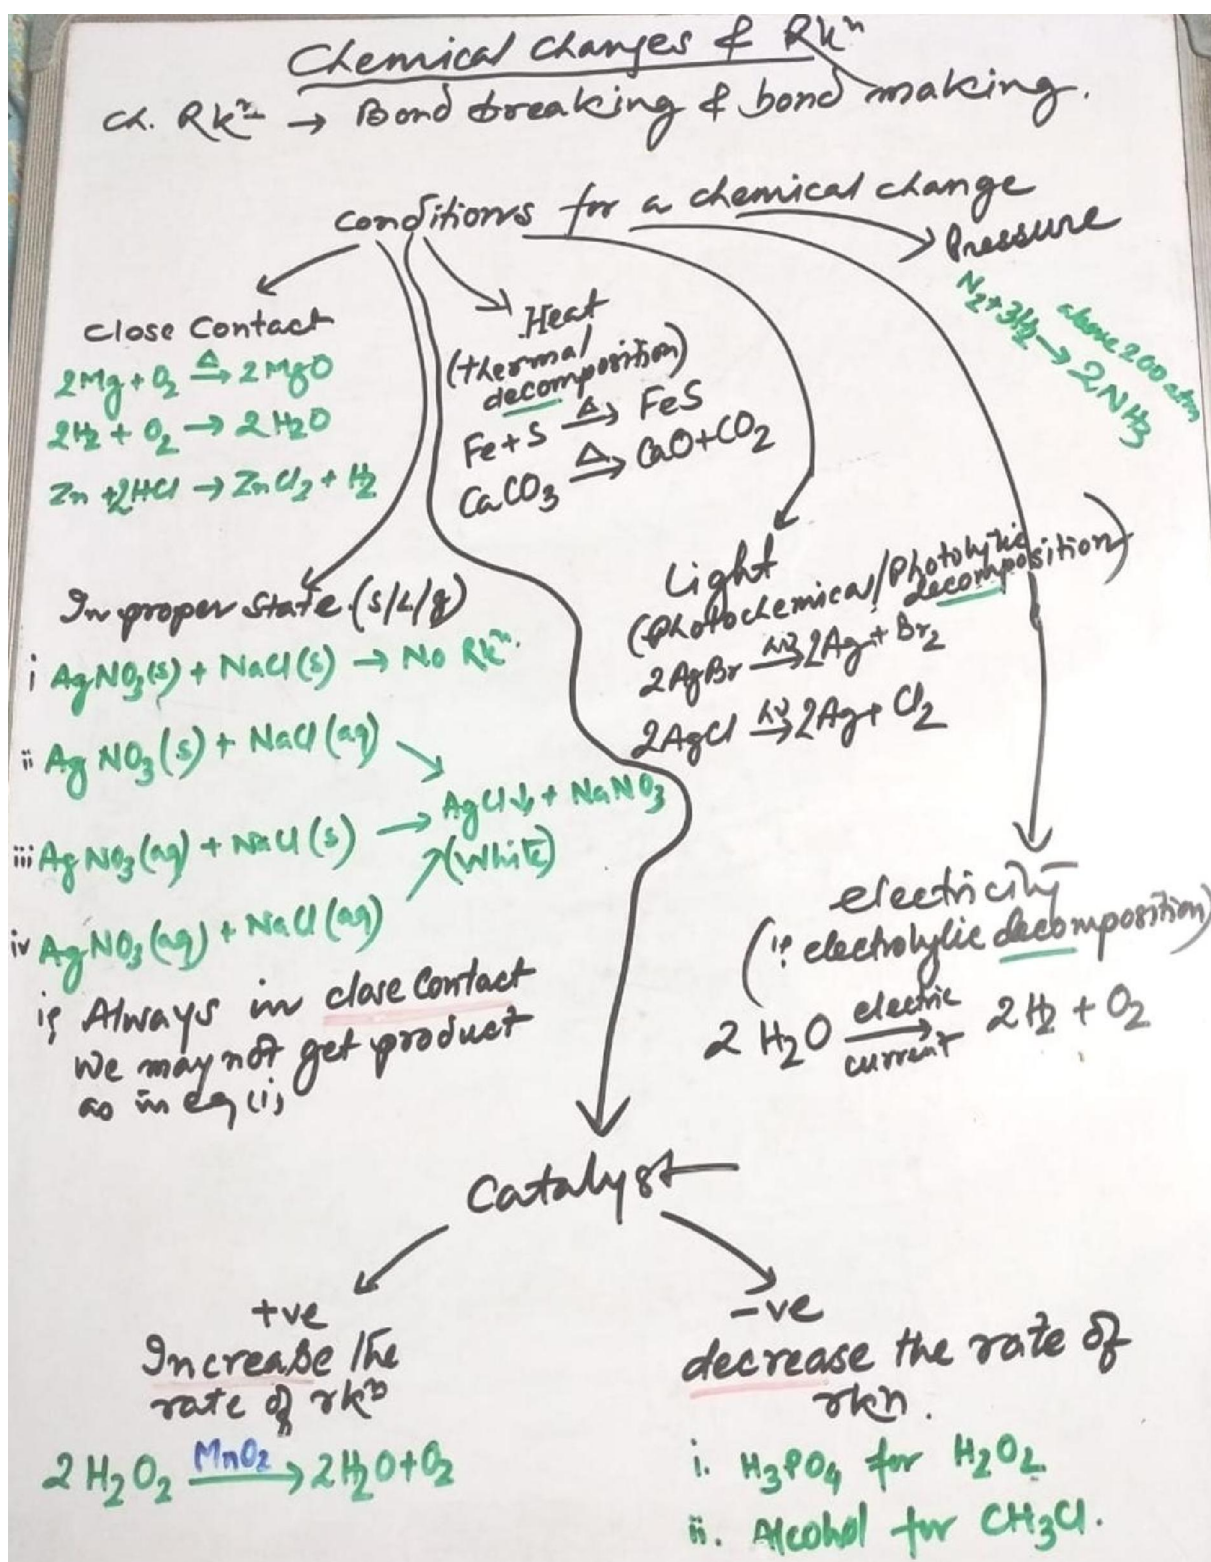 Chemical Changes & Rkⁿ
Ch. Rkⁿ → Bond breaking & bond making.
Conditions for a chemical change
Close Contact
2Mg + O₂ △→ 2MgO
2H₂ + O₂ → 2H₂O
Zn + 2HCl → ZnCl₂ + H₂
Heat
(thermal
decomposition)
Fe + S △→ FeS
CaCO₃ △→ CaO + CO₂
Pressure
N₂ + 3H₂ → 2NH₃
above 200 atm
In proper state (s/L/g)
i AgNO₃(s) + NaCl(s) → No Rkⁿ.
ii AgNO₃(s) + NaCl(aq)
iii AgNO₃(aq) + NaCl(s) → AgCl↓ + NaNO₃
(White)
iv AgNO₃(aq) + NaCl(aq)
if Always in close Contact
we may not get product
as in eq (i)
Light
(Photochemical/Photolytic
decomposition)
2AgBr hν→ 2Ag + Br₂
2AgCl hν→ 2Ag + Cl₂
electricity
(if electrolytic decomposition)
2H₂O electric current→ 2H₂ + O₂
Catalyst
+ve
Increase the
rate of rkⁿ
2H₂O₂ MnO₂→ 2H₂O + O₂
-ve
decrease the rate of
rkn.
i. H₃PO₄ for H₂O₂
ii. Alcohol for CH₃Cl.